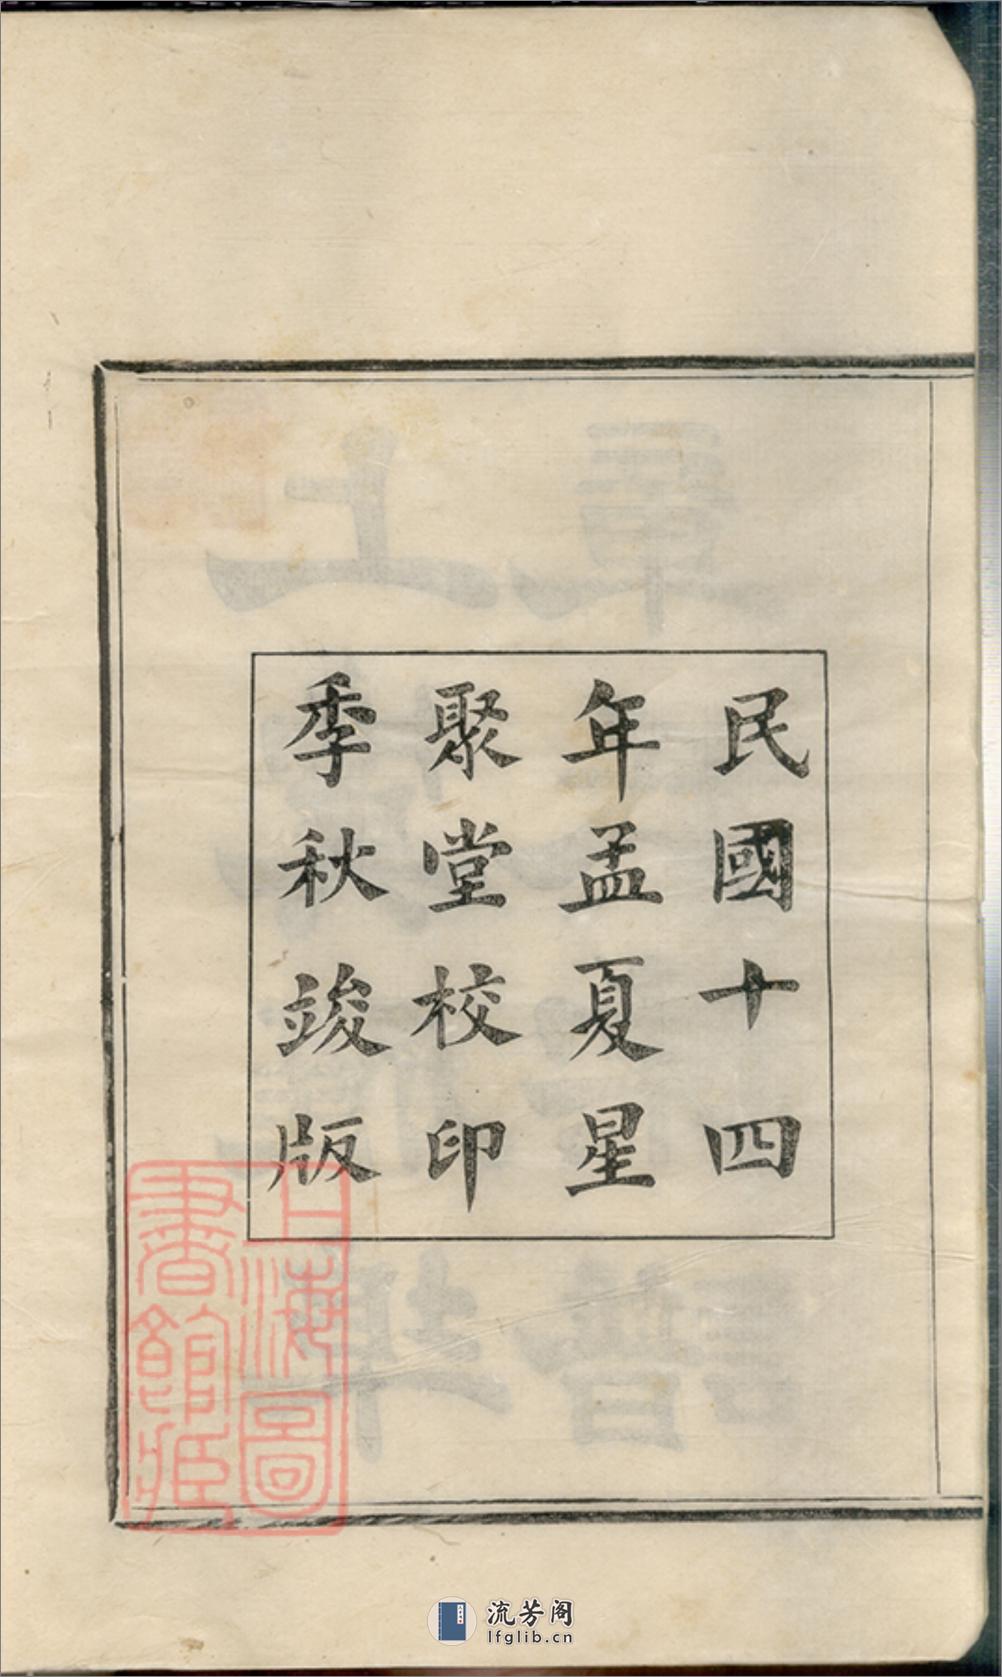 民國十四
年孟夏星
聚堂校印
季秋竣版
上海圖
書館藏
流芳阁
lfglib.cn